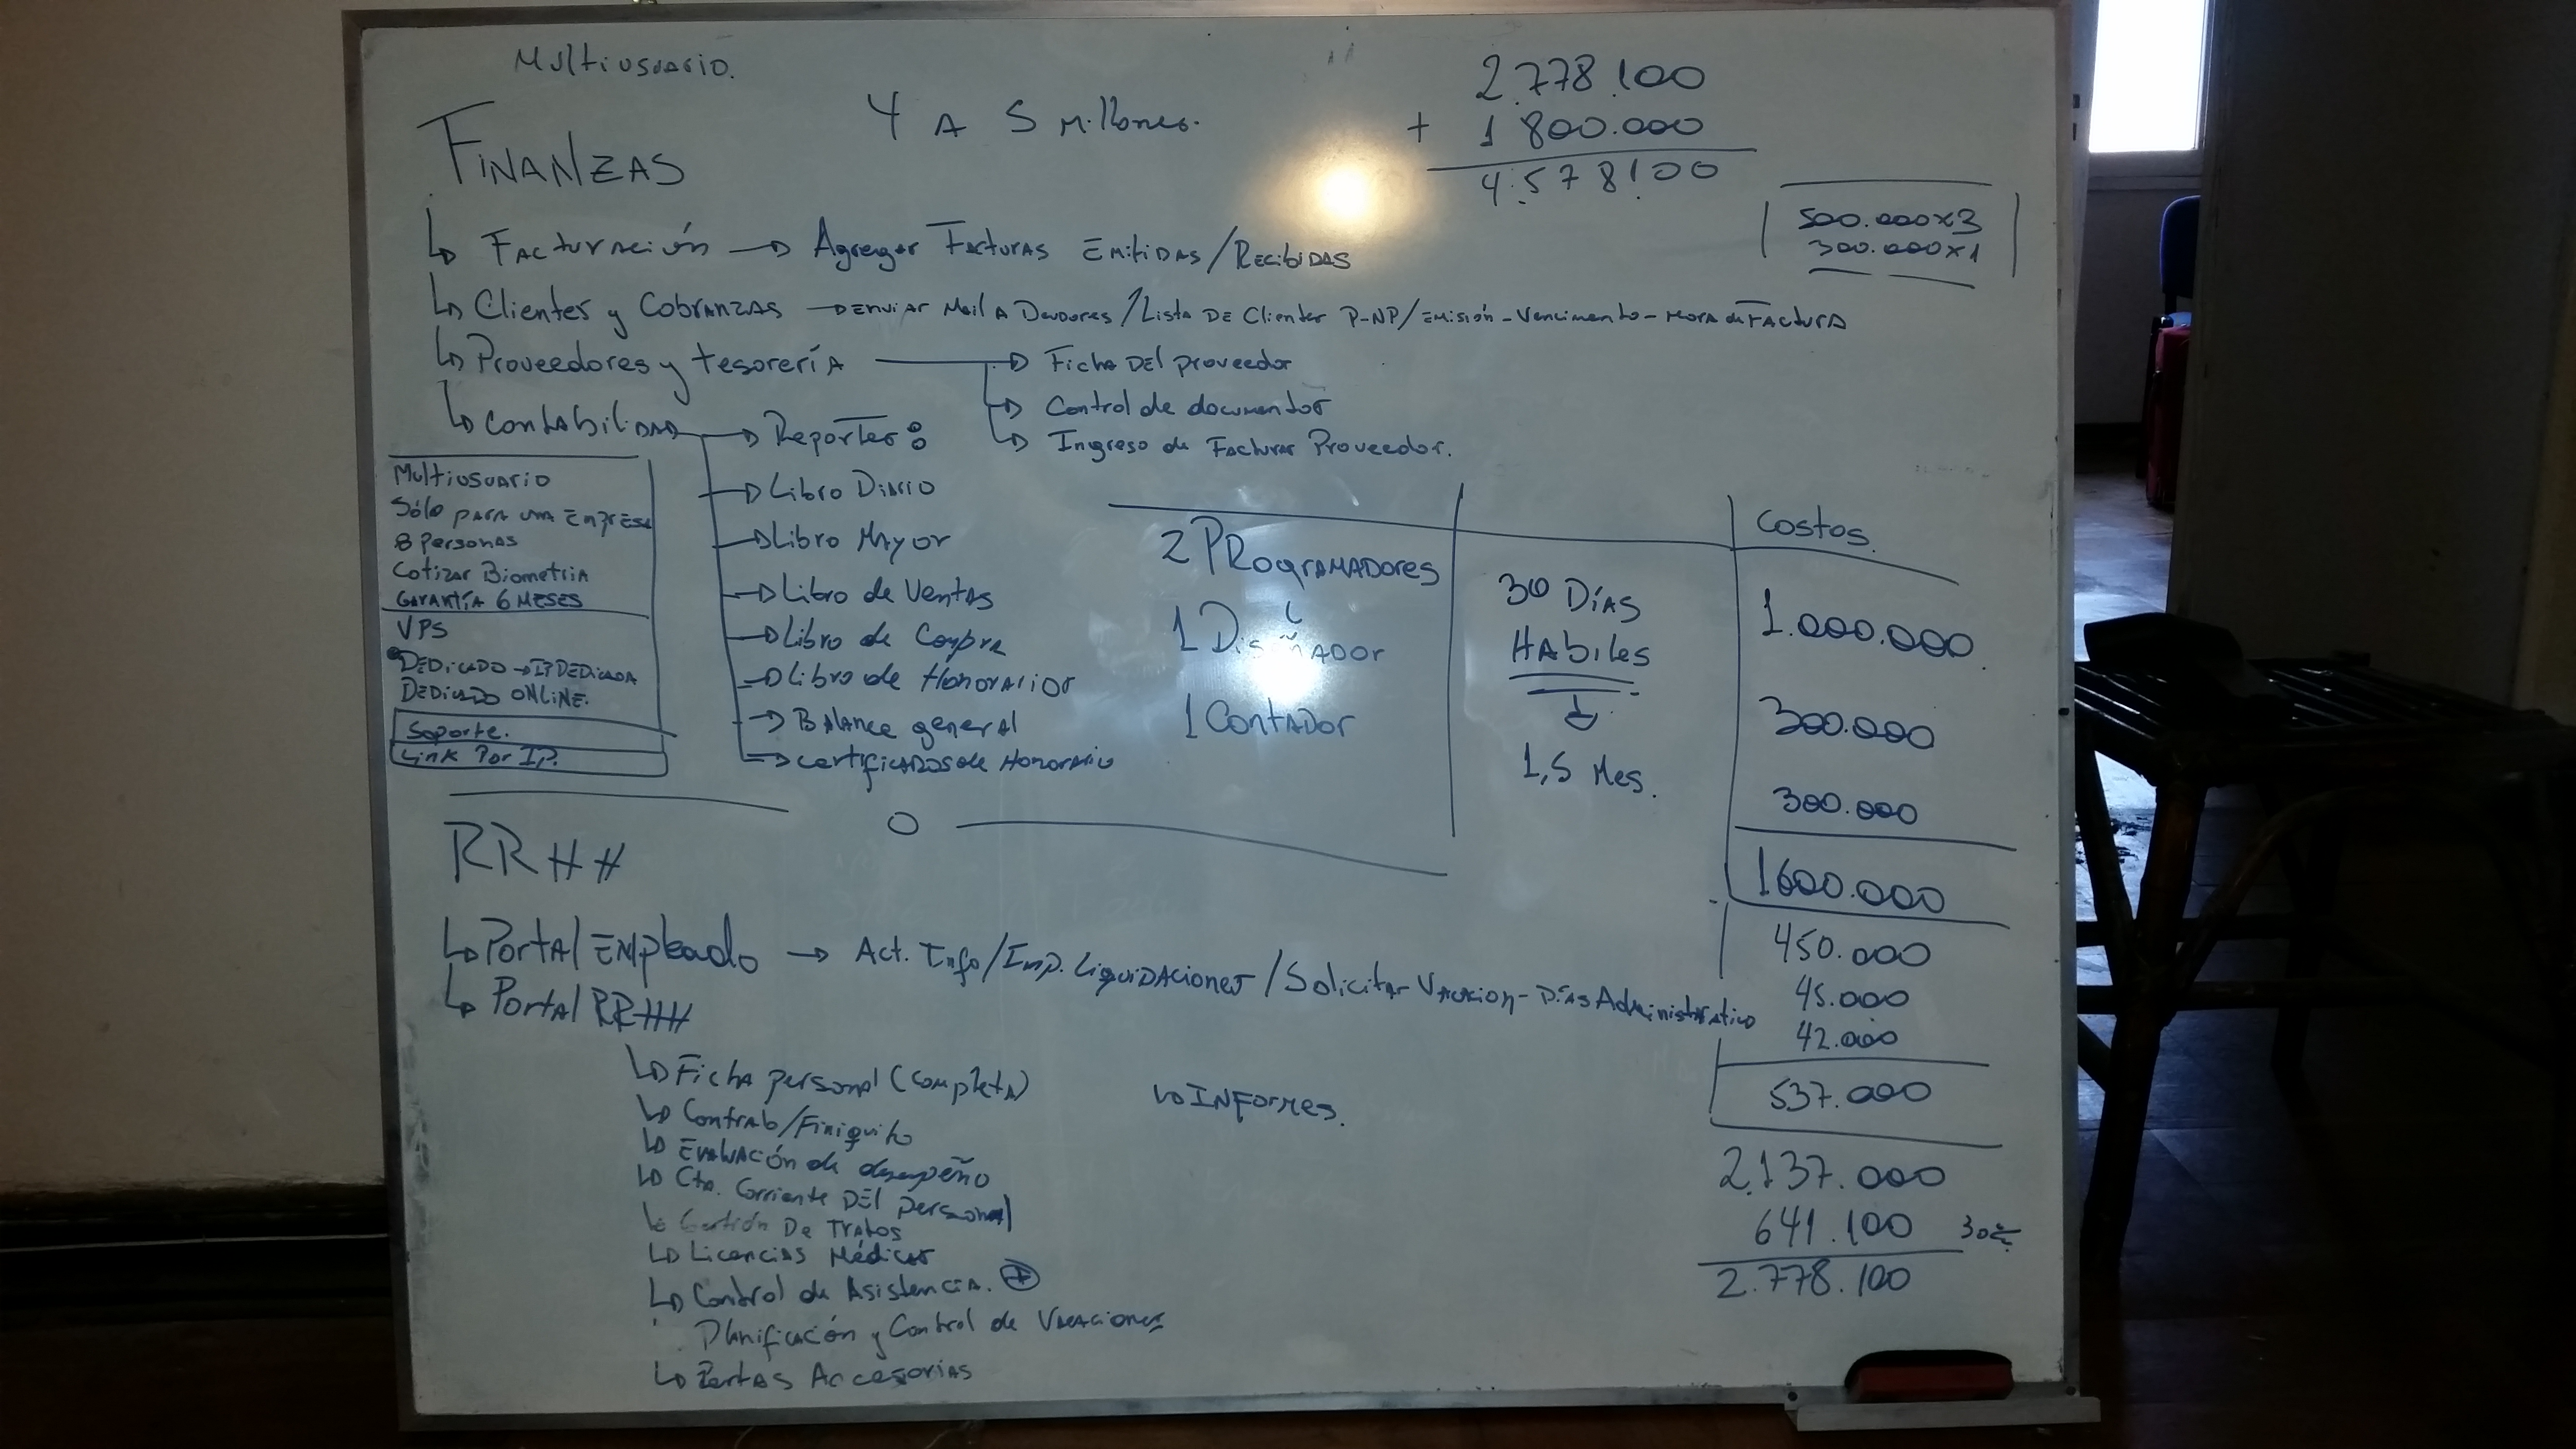 Multiusuario.
FINANZAS
4 A 5 Millones.
2.778.100
+ 1 800.000
4.578100
500.000x3
300.000x1
↳ Facturación → Agregar Facturas Emitidas/Recibidas
↳ Clientes y Cobranzas → Enviar Mail a Deudores/Lista de Clientes P-NP/Emisión-Vencimiento-Mora de Factura
↳ Proveedores y tesorería → Ficha Del proveedor
→ Control de documentos
→ Ingreso de Facturas Proveedor.
↳ Contabilidad → Reportes:
→ Libro Diario
→ Libro Mayor
→ Libro de Ventas
→ Libro de Compra
→ Libro de Honorarios
→ Balance general
→ certificados de Honorario
Multiusuario
Sólo para una Empresa
8 Personas
Cotizar Biometria
Garantía 6 MESES
VPS
Dedicado → IP Dedicada
Dedicado ONLINE.
Soporte.
Link Por IP.
2 Programadores
1 Diseñador
1 Contador
30 Días
Habiles
↓
1,5 Mes.
Costos.
1.000.000
300.000
300.000
1600.000
450.000
45.000
42.000
537.000
2.137.000
641.100 30%
2.778.100
RRHH
↳ Portal Empleado → Act. Info/Imp. Liquidaciones/Solicitar Vacacion-Días Administrativo
↳ Portal RRHH
↳ Ficha personal (completa)
↳ Contrato/Finiquito
↳ Evaluación de desempeño
↳ Cta. Corriente Del personal
↳ Gestión De Tratos
↳ Licencias Médicas
↳ Control de Asistencia. +
Planificación y Control de Vacaciones
↳ Rentas Accesorias
↳ Informes.